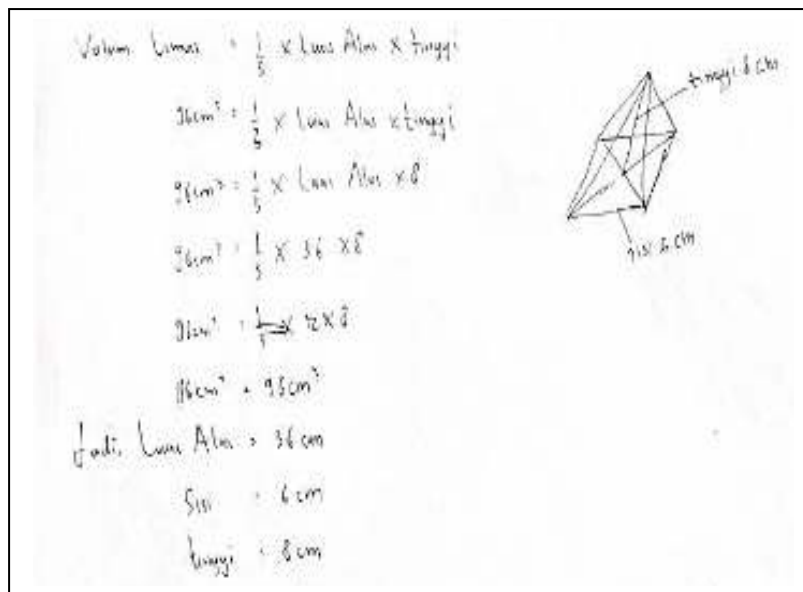 Volum Limas = 1/3 x Luas Alas x tinggi
96cm³ = 1/3 x Luas Alas x tinggi
96cm³ = 1/3 x Luas Alas x 8
96cm³ = 1/3 x 36 x 8
96cm³ = x 8
96cm³ =
Jadi Luas Alas = 36 cm
Sisi = 6 cm
tinggi = 8 cm
tinggi 8 cm
sisi 6 cm